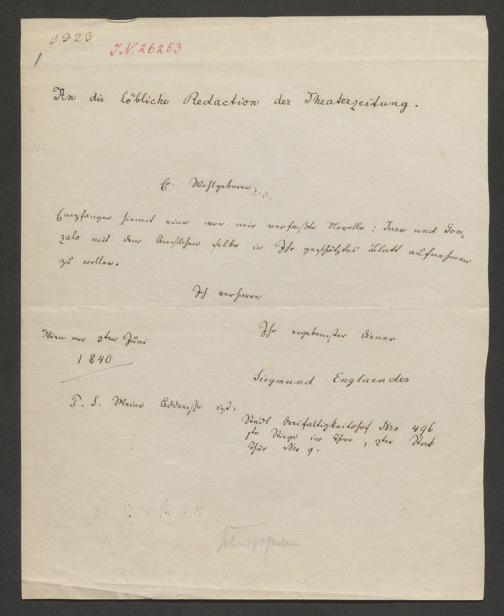 3923
I.N. 26253
1
An die löbliche Redaction der Theaterzeitung.
Er. Wohlgeboren
Empfangen hiemit eine von mir verfaßte Novelle: Inez und Gon-
zalo mit dem Ansuchen selbe in Ihr geschätztes Blatt aufnehmen
zu wollen.
Ich verharre
Ihr ergebenster Diener
Wien am 3ten Juni
1840
Siegmund Englaender
P. S. Meine Addresse ist:
Stadt Dreifaltigkeitshof Nro 496
Stiege im Hofe, 2ter Stock
Thür Nro 9.